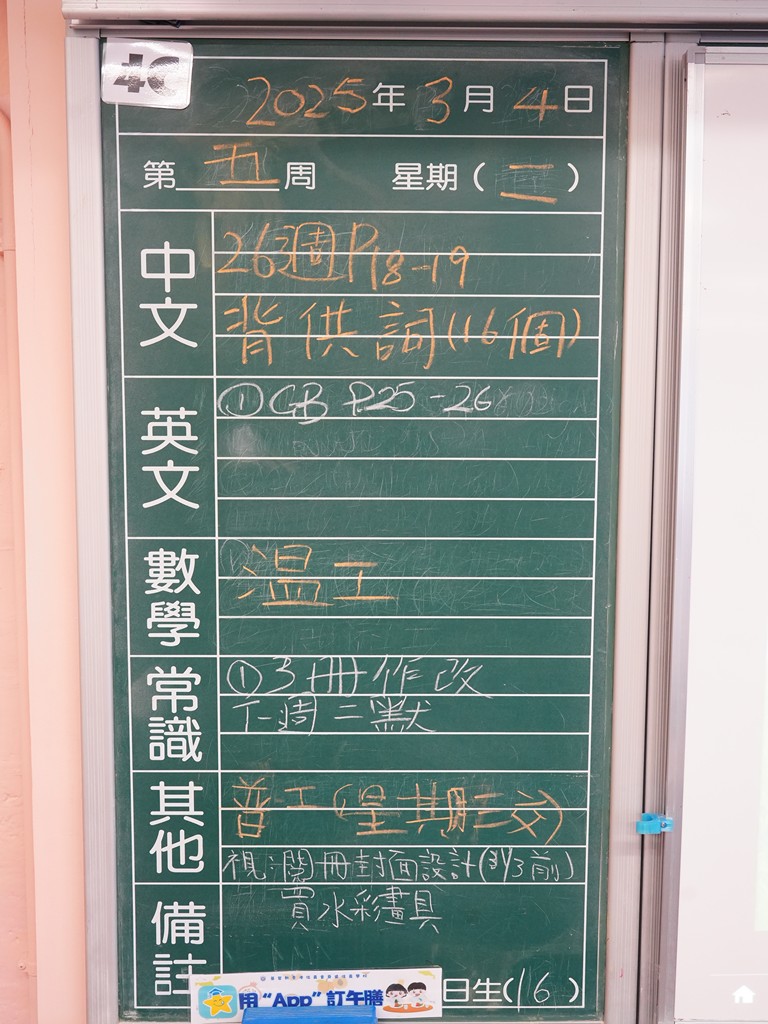 4C
2025年3月4日
第五周 星期(二)
中文
26週P18-19
背供詞(16個)
英文
①GB P.25-26
數學
溫工
常識
①3冊作改
下週二默
其他
普工(星期三交)
視:閱冊封面設計(31/3前)
備註
買水彩畫具
用“App”訂午膳
日生(16)